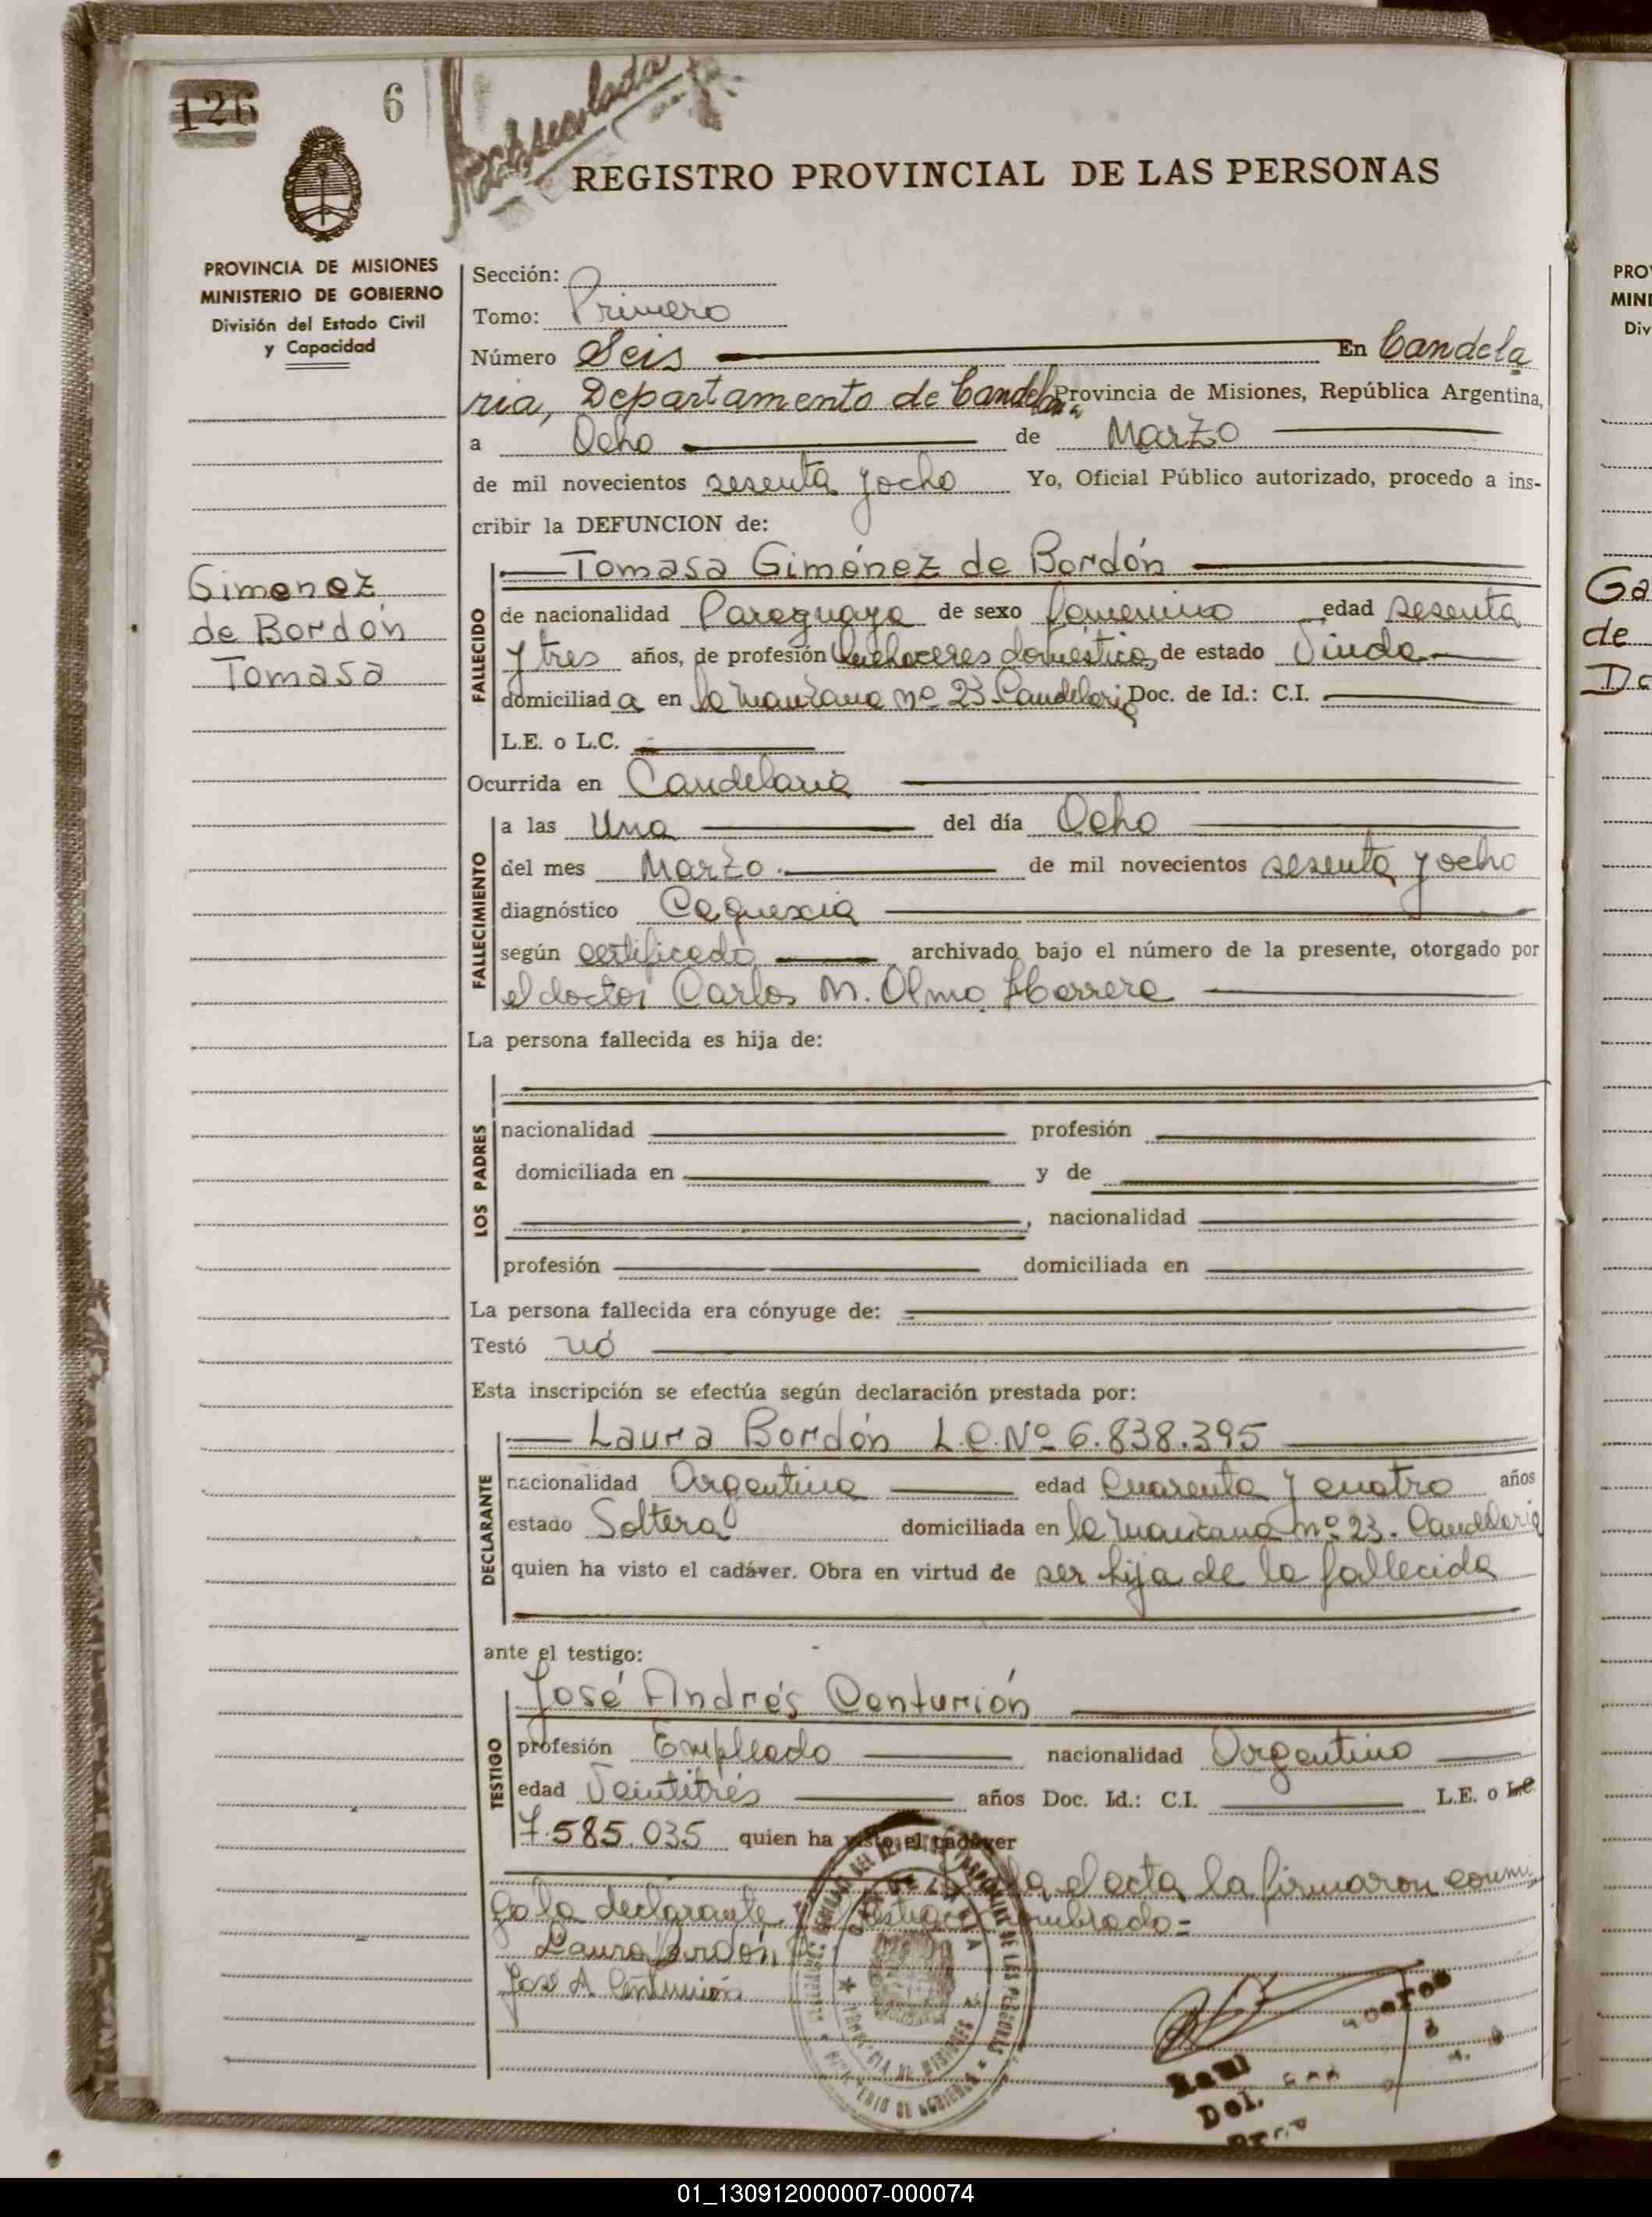 126
6
REGISTRO PROVINCIAL DE LAS PERSONAS
PROVINCIA DE MISIONES
MINISTERIO DE GOBIERNO
División del Estado Civil
y Capacidad
Gimenez
de Bordón
Tomasa
Sección:
Tomo: Primero
Número Seis En Candela
ria, Departamento de Candelaria Provincia de Misiones, República Argentina,
a Ocho de Marzo
de mil novecientos sesenta y ocho Yo, Oficial Público autorizado, procedo a ins-
cribir la DEFUNCION de:
FALLECIDO
Tomasa Giménez de Bordón
de nacionalidad Paraguaya de sexo femenino edad sesenta
y tres años, de profesión Quehaceres domésticos de estado Viuda
domiciliada en la manzana nº 23 Candelaria Doc. de Id.: C.I.
L.E. o L.C.
Ocurrida en Candelaria
FALLECIMIENTO
a las Una del día Ocho
del mes Marzo. de mil novecientos sesenta y ocho
diagnóstico Caquexia
según certificado archivado bajo el número de la presente, otorgado por
el doctor Carlos M. Olmo Herrera
La persona fallecida es hija de:
LOS PADRES
nacionalidad profesión
domiciliada en y de
, nacionalidad
profesión domiciliada en
La persona fallecida era cónyuge de:
Testó nó
Esta inscripción se efectúa según declaración prestada por:
DECLARANTE
Laura Bordón L.C. Nº 6.838.395
nacionalidad Argentina edad Cuarenta y cuatro años
estado Soltera domiciliada en la manzana nº 23. Candelaria
quien ha visto el cadáver. Obra en virtud de ser hija de la fallecida
ante el testigo:
TESTIGO
José Andrés Centurión
profesión Empleado nacionalidad Argentino
edad Veintitrés años Doc. Id.: C.I. L.E. o L.C
7.585.035 quien ha visto el cadáver
el acta la firmaron conmi
go la declarante y el testigo nombrado=
Laura Bordón
José A Centurión
Del.
PRO
MINI
Div
Ga
de
01_130912000007-000074